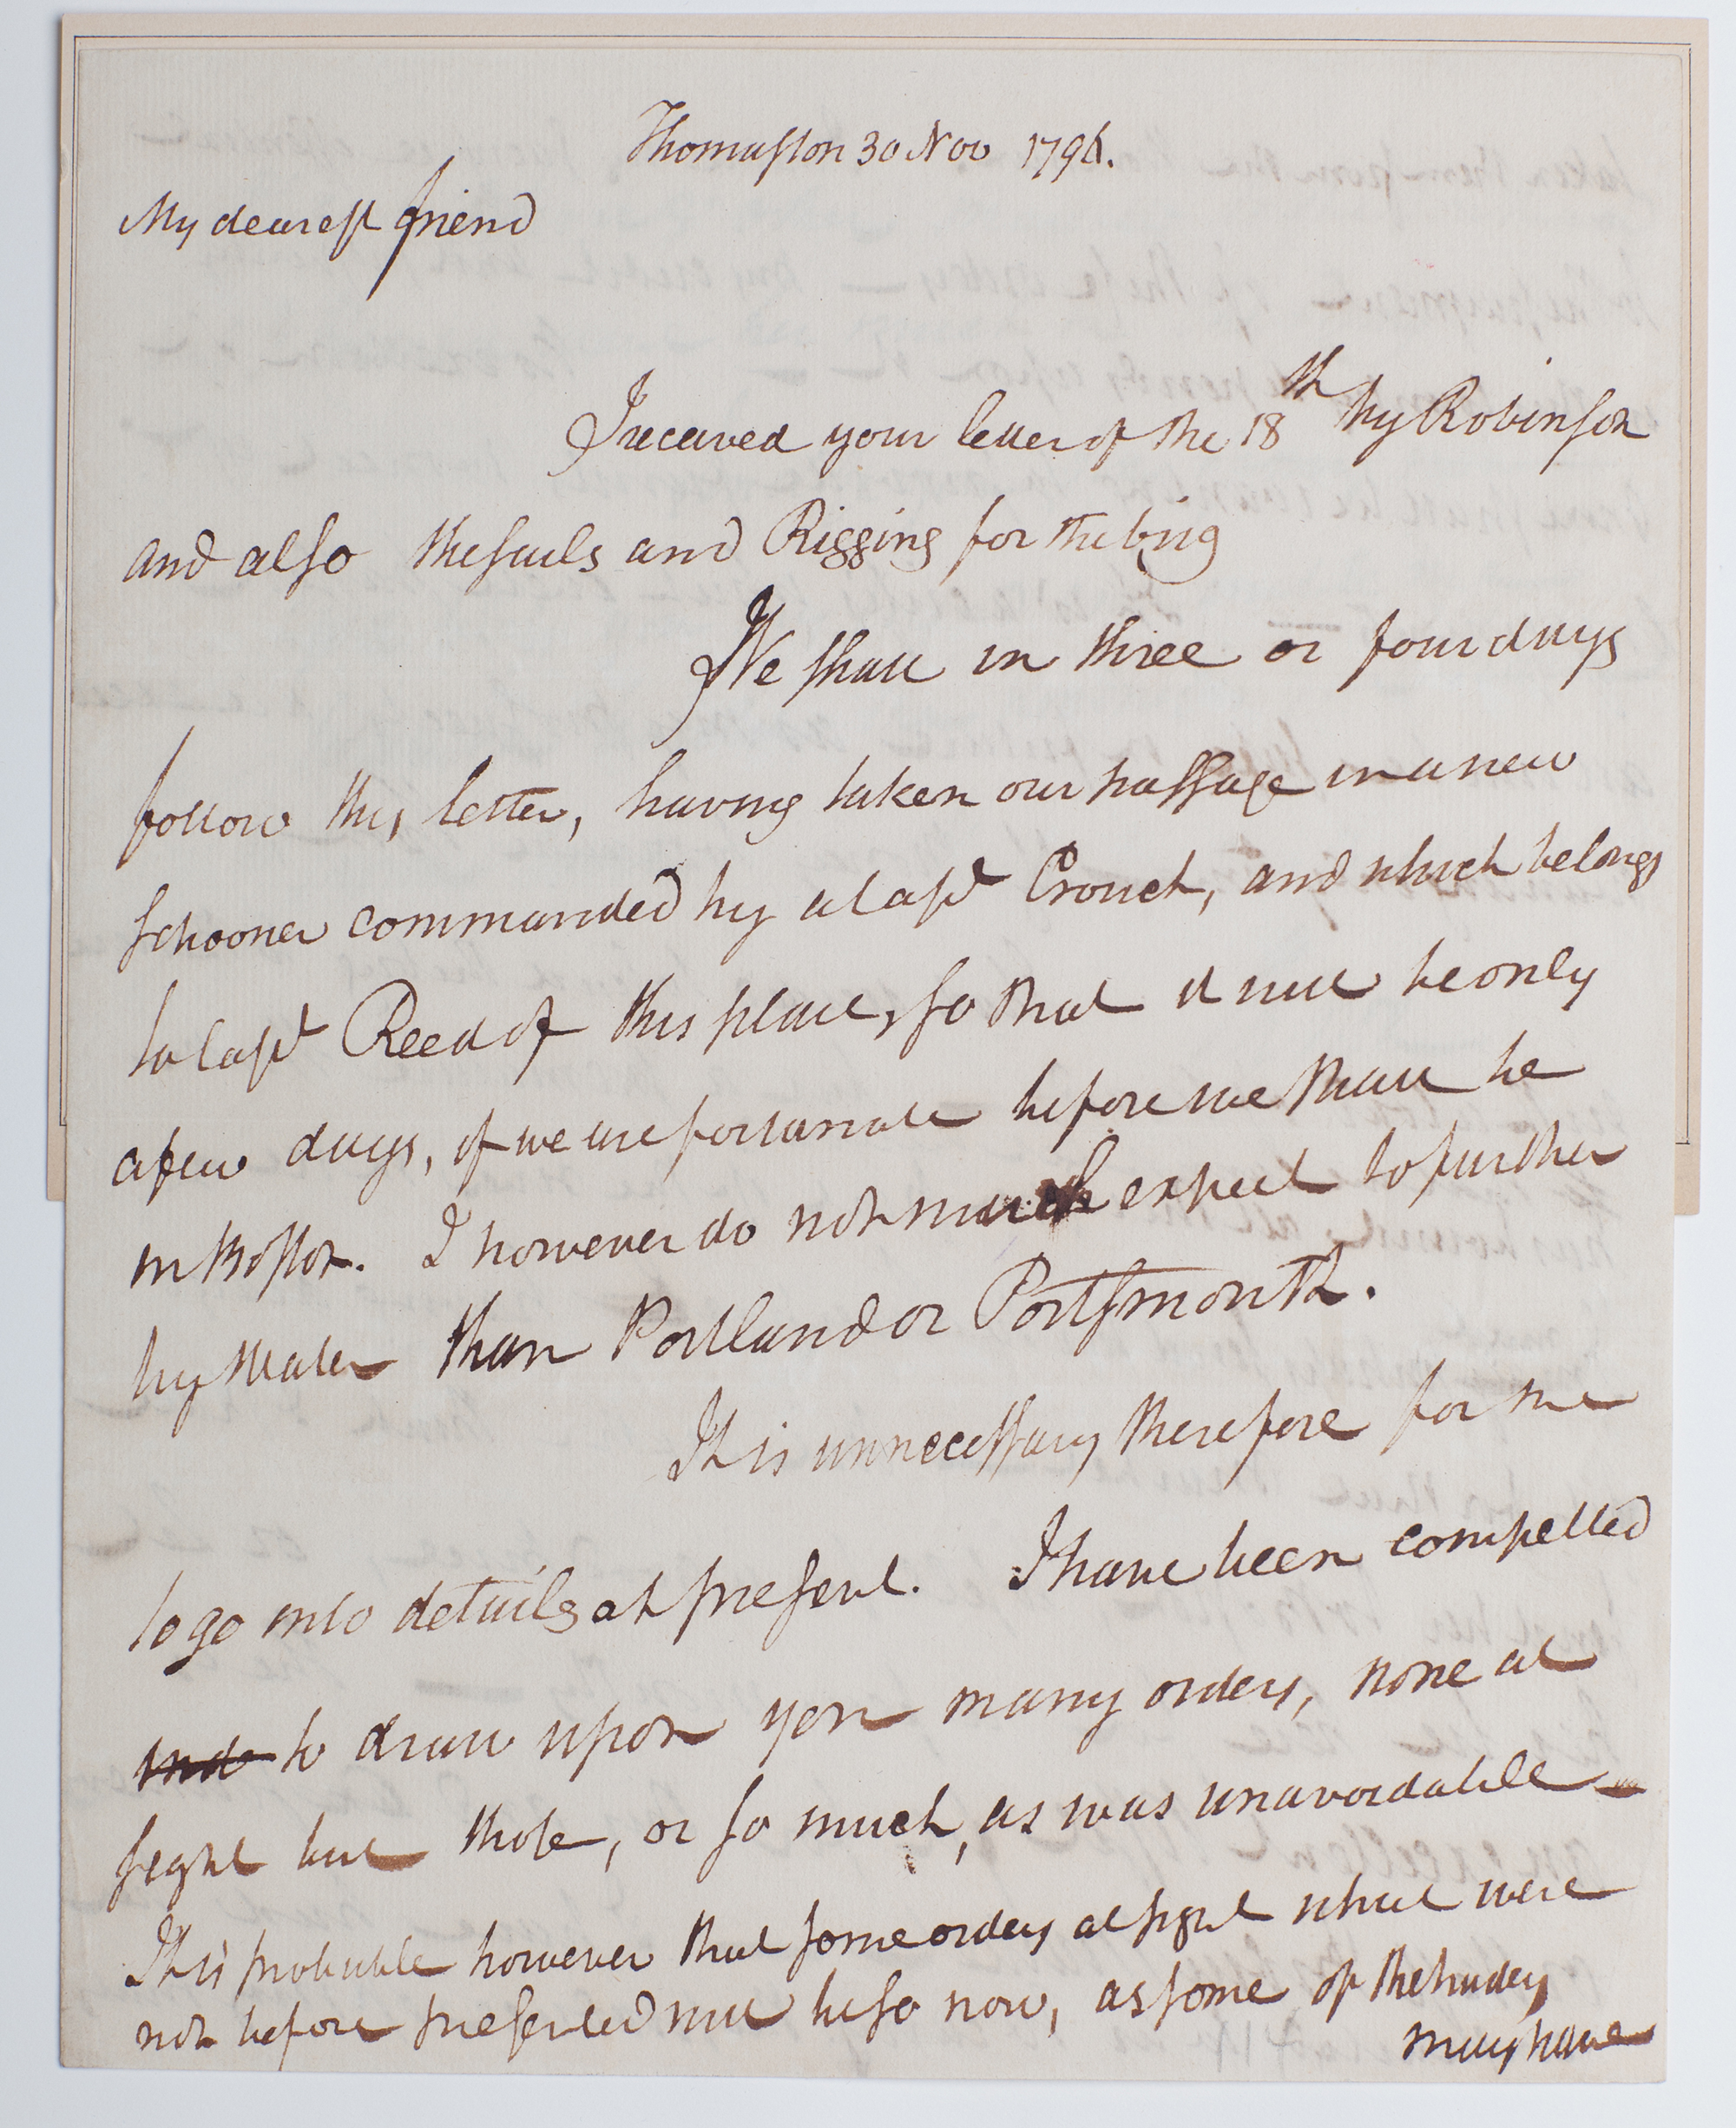 Thomaston 30 Nov 1796.
My dearest friend
I received your letter of the 18th by Robinson
and also the sails and Rigging for the brig
We shall in three or four days
follow this letter, having taken our passage in a new
schooner commanded by a Capt Crouch, and which belongs
to Capt Reed of this place, so that it will be only
a few days, if we are fortunate before we shall be
in Boston. I however do not much expect to further
by Water than Portland or Portsmouth.
It is unnecessary therefore for me
to go into details at present. I have been compelled
to draw upon you many orders, none at
sight but those, or so much, as was unavoidable
It is probable however that some orders at sight which were
not before presented will be so now, as some of the
may have